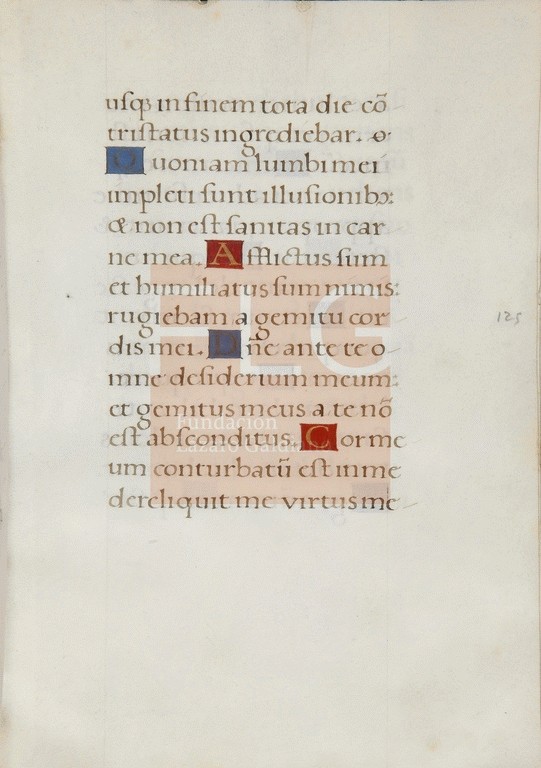 uſqꝫ in finem tota die cõ
triſtatus ingrediebar.
Quoniam lumbi mei
impleti ſunt illuſionibꝫ:
& non eſt ſanitas in car
ne mea. Afflictus ſum
et humiliatus ſum nimis:
rugiebam a gemitu cor
dis mei. Dñe ante te o
mne deſiderium meum:
et gemitus meus a te nõ
eſt abſconditus. Cor me
um conturbatũ eſt in me
dereliquit me virtus me
125
LG
Fundación
Lázaro Galdiano